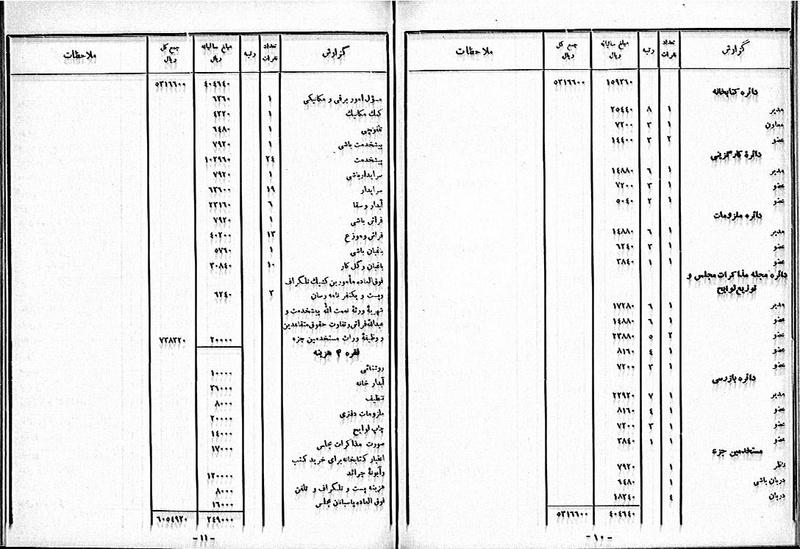 گزارش	تعداد نفرات	رتبه	مبلغ سالیانه ریال	جمع کل ریال	ملاحظات
۱۵۹۳۶۰	۵۳۱۶۶۰۰
دائره کتابخانه
مدیر	۱	۸	۲۵۴۴۰
معاون	۱	۳	۷۲۰۰
عضو	۲	۳	۱۴۴۰۰
دائرهٔ کارگزینی
مدیر	۱	۶	۱۴۸۸۰
عضو	۱	۳	۷۲۰۰
عضو	۱	۲	۵۰۴۰
دائره ملزومات
مدیر	۱	۶	۱۴۸۸۰
عضو	۱	۳	۶۲۴۰
عضو	۱	۱	۳۸۴۰
دائره مجله مذاکرات مجلس و
توزیع لوایح
مدیر	۱	۶	۱۷۲۸۰
عضو	۱	۶	۱۴۸۸۰
عضو	۲	۵	۲۳۸۸۰
عضو	۱	۴	۸۱۶۰
عضو	۱	۳	۷۲۰۰
دائره بازرسی
مدیر	۱	۷	۲۲۹۲۰
عضو	۱	۴	۸۱۶۰
عضو	۱	۳	۷۲۰۰
عضو	۱	۱	۳۸۴۰
مستخدمین جزء
ناظر	۱	۷۹۲۰
دربان باشی	۱	۶۴۸۰
دربان	۴	۱۸۲۴۰
۴۰۴۶۴۰	۵۳۱۶۶۰۰
-۱۰-
گزارش	تعداد نفرات	رتبه	مبلغ سالیانه ریال	جمع کل ریال	ملاحظات
۴۰۴۶۴۰	۵۳۱۶۶۰۰
مسؤل امور برقی و مکانیکی	۱	۶۳۶۰
کمک مکانیک	۱	۴۳۲۰
تلفونچی	۱	۶۴۸۰
پیشخدمت باشی	۱	۷۹۲۰
پیشخدمت	۲۴	۱۰۲۹۶۰
سرایدارباشی	۱	۷۹۲۰
سرایدار	۱۹	۶۳۶۰۰
آبدار و سقا	۶	۲۳۱۶۰
فراش باشی	۱	۷۹۲۰
فراش و موزع	۱۳	۴۰۲۰۰
باغبان باشی	۱	۵۷۶۰
باغبان و گل کار	۱۰	۳۰۸۴۰
فوق العاده مأمورین کشیک تلگراف
و پست و یکنفر نامه رسان	۳	۶۲۴۰
شهریهٔ ورثهٔ نعمت الله پیشخدمت و
عبدالله فراش و تفاوت حقوق متقاعدین
و وظیفهٔ وراث مستخدمین جزء	۲۰۰۰۰	۷۳۸۳۲۰
فقره ۳ هزینه
روشنائی	۱۰۰۰۰
آبدار خانه	۳۶۰۰۰
تنظیف	۸۰۰۰
ملزومات دفتری	۲۰۰۰۰
چاپ لوایح	۱۴۰۰۰
صورت مذاکرات مجلس	۱۷۰۰۰
اعتبار کتابخانه برای خرید کتب
و آبونهٔ جرائد	۱۲۰۰۰۰
هزینه پست و تلگراف و تلفن	۸۰۰۰
فوق العاده پاسبانان مجلس	۱۶۰۰۰
۲۴۹۰۰۰	۶۰۵۴۹۲۰
-۱۱-